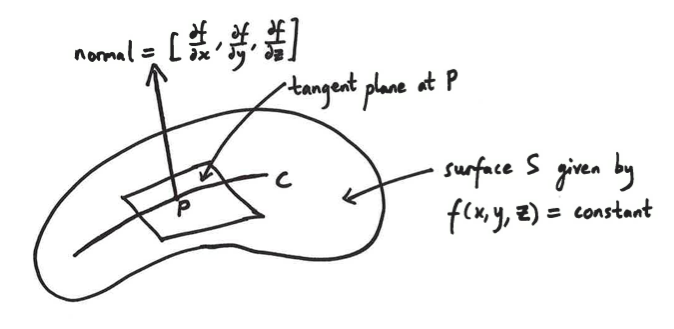 normal = [∂f/∂x, ∂f/∂y, ∂f/∂z]
tangent plane at P
C
P
surface S given by
f(x, y, z) = constant